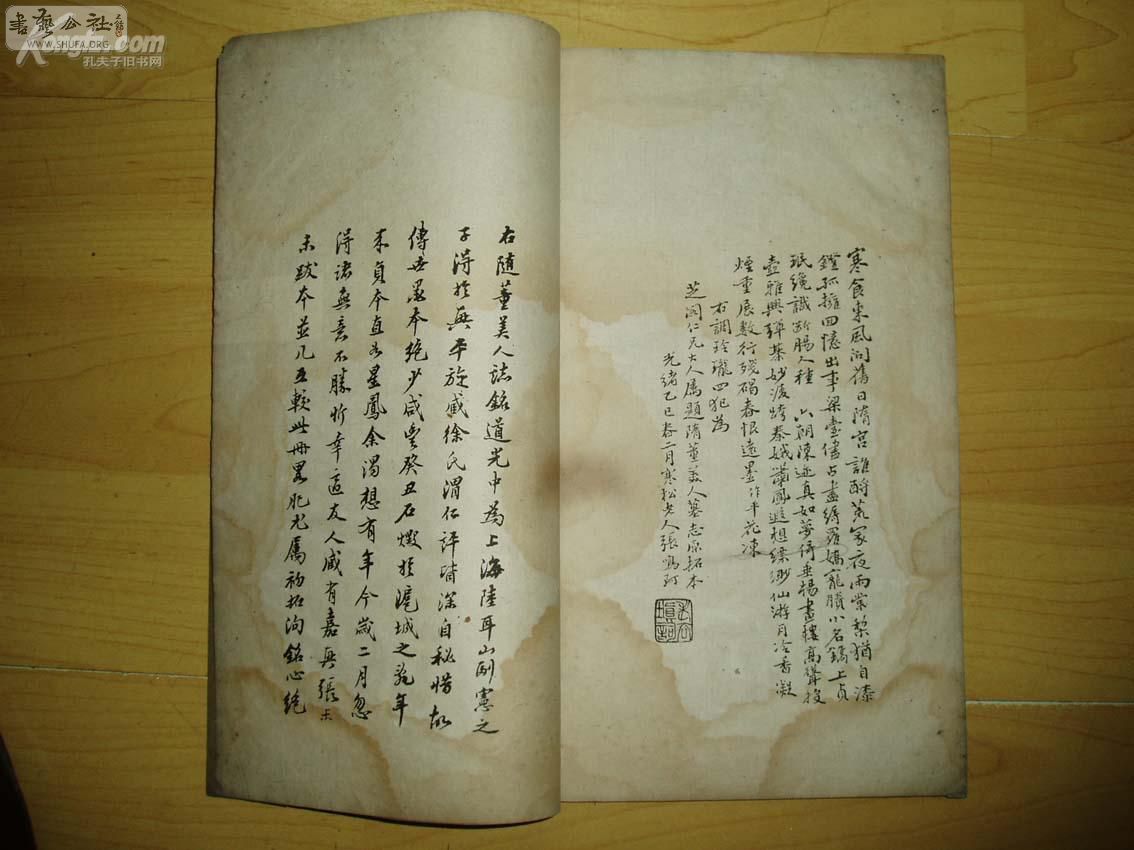 書藝公社
WWW.SHUFA.ORG
孔夫子旧书网
寒食東風問舊日隋宮誰酹荒冢夜雨棠梨猶自漆
鐙孤擁回憶出事梁臺儘占盡綺羅嬌寵賸小名鐫上貞
珉纔識斷腸人種 六朝陳迹真如夢倚垂楊畫樓高聳投
壺雅興彈棊妙後跨秦娥簫鳳遐想縹緲仙游月冷香凝
煙重展數行殘碣春恨遠墨作平花凍
右調玲瓏四犯為
芝閣仁兄大人屬題隋董美人墓志原拓本
光緒乙巳春二月寒松老人張鳴珂
右隨董美人誌銘道光中為上海陸耳山副憲之
子得於興平旋歸徐氏渭仁評磧深自秘惜故
傳世墨本絕少咸豐癸丑石燬於滬城之亂年
來負本直如星鳳余渴想有年今歲二月忽
得諸無意不勝忻幸適友人咸有嘉興張
未跋本並几互較此冊畧肥尤屬初拓洵銘心絕